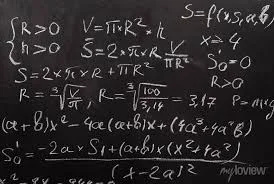 { R > 0   V = π × R² × h   S = f(x, S₁, a, b)
h > 0   S = 2 × π × R × V/(πR²)   x ≥ 4
S = 2 × π × R + πR²   S₀' = 0
R = ∛(V/π), R = ∛(100/3,14) = 3,17   R > 0
(a+b)x² - 4a(a+b)x + (4a³ + 4a²b
S₀' = (-2a × S₁ + (a+b)(x² + 4a²)) / (x - 2a)²
myloview